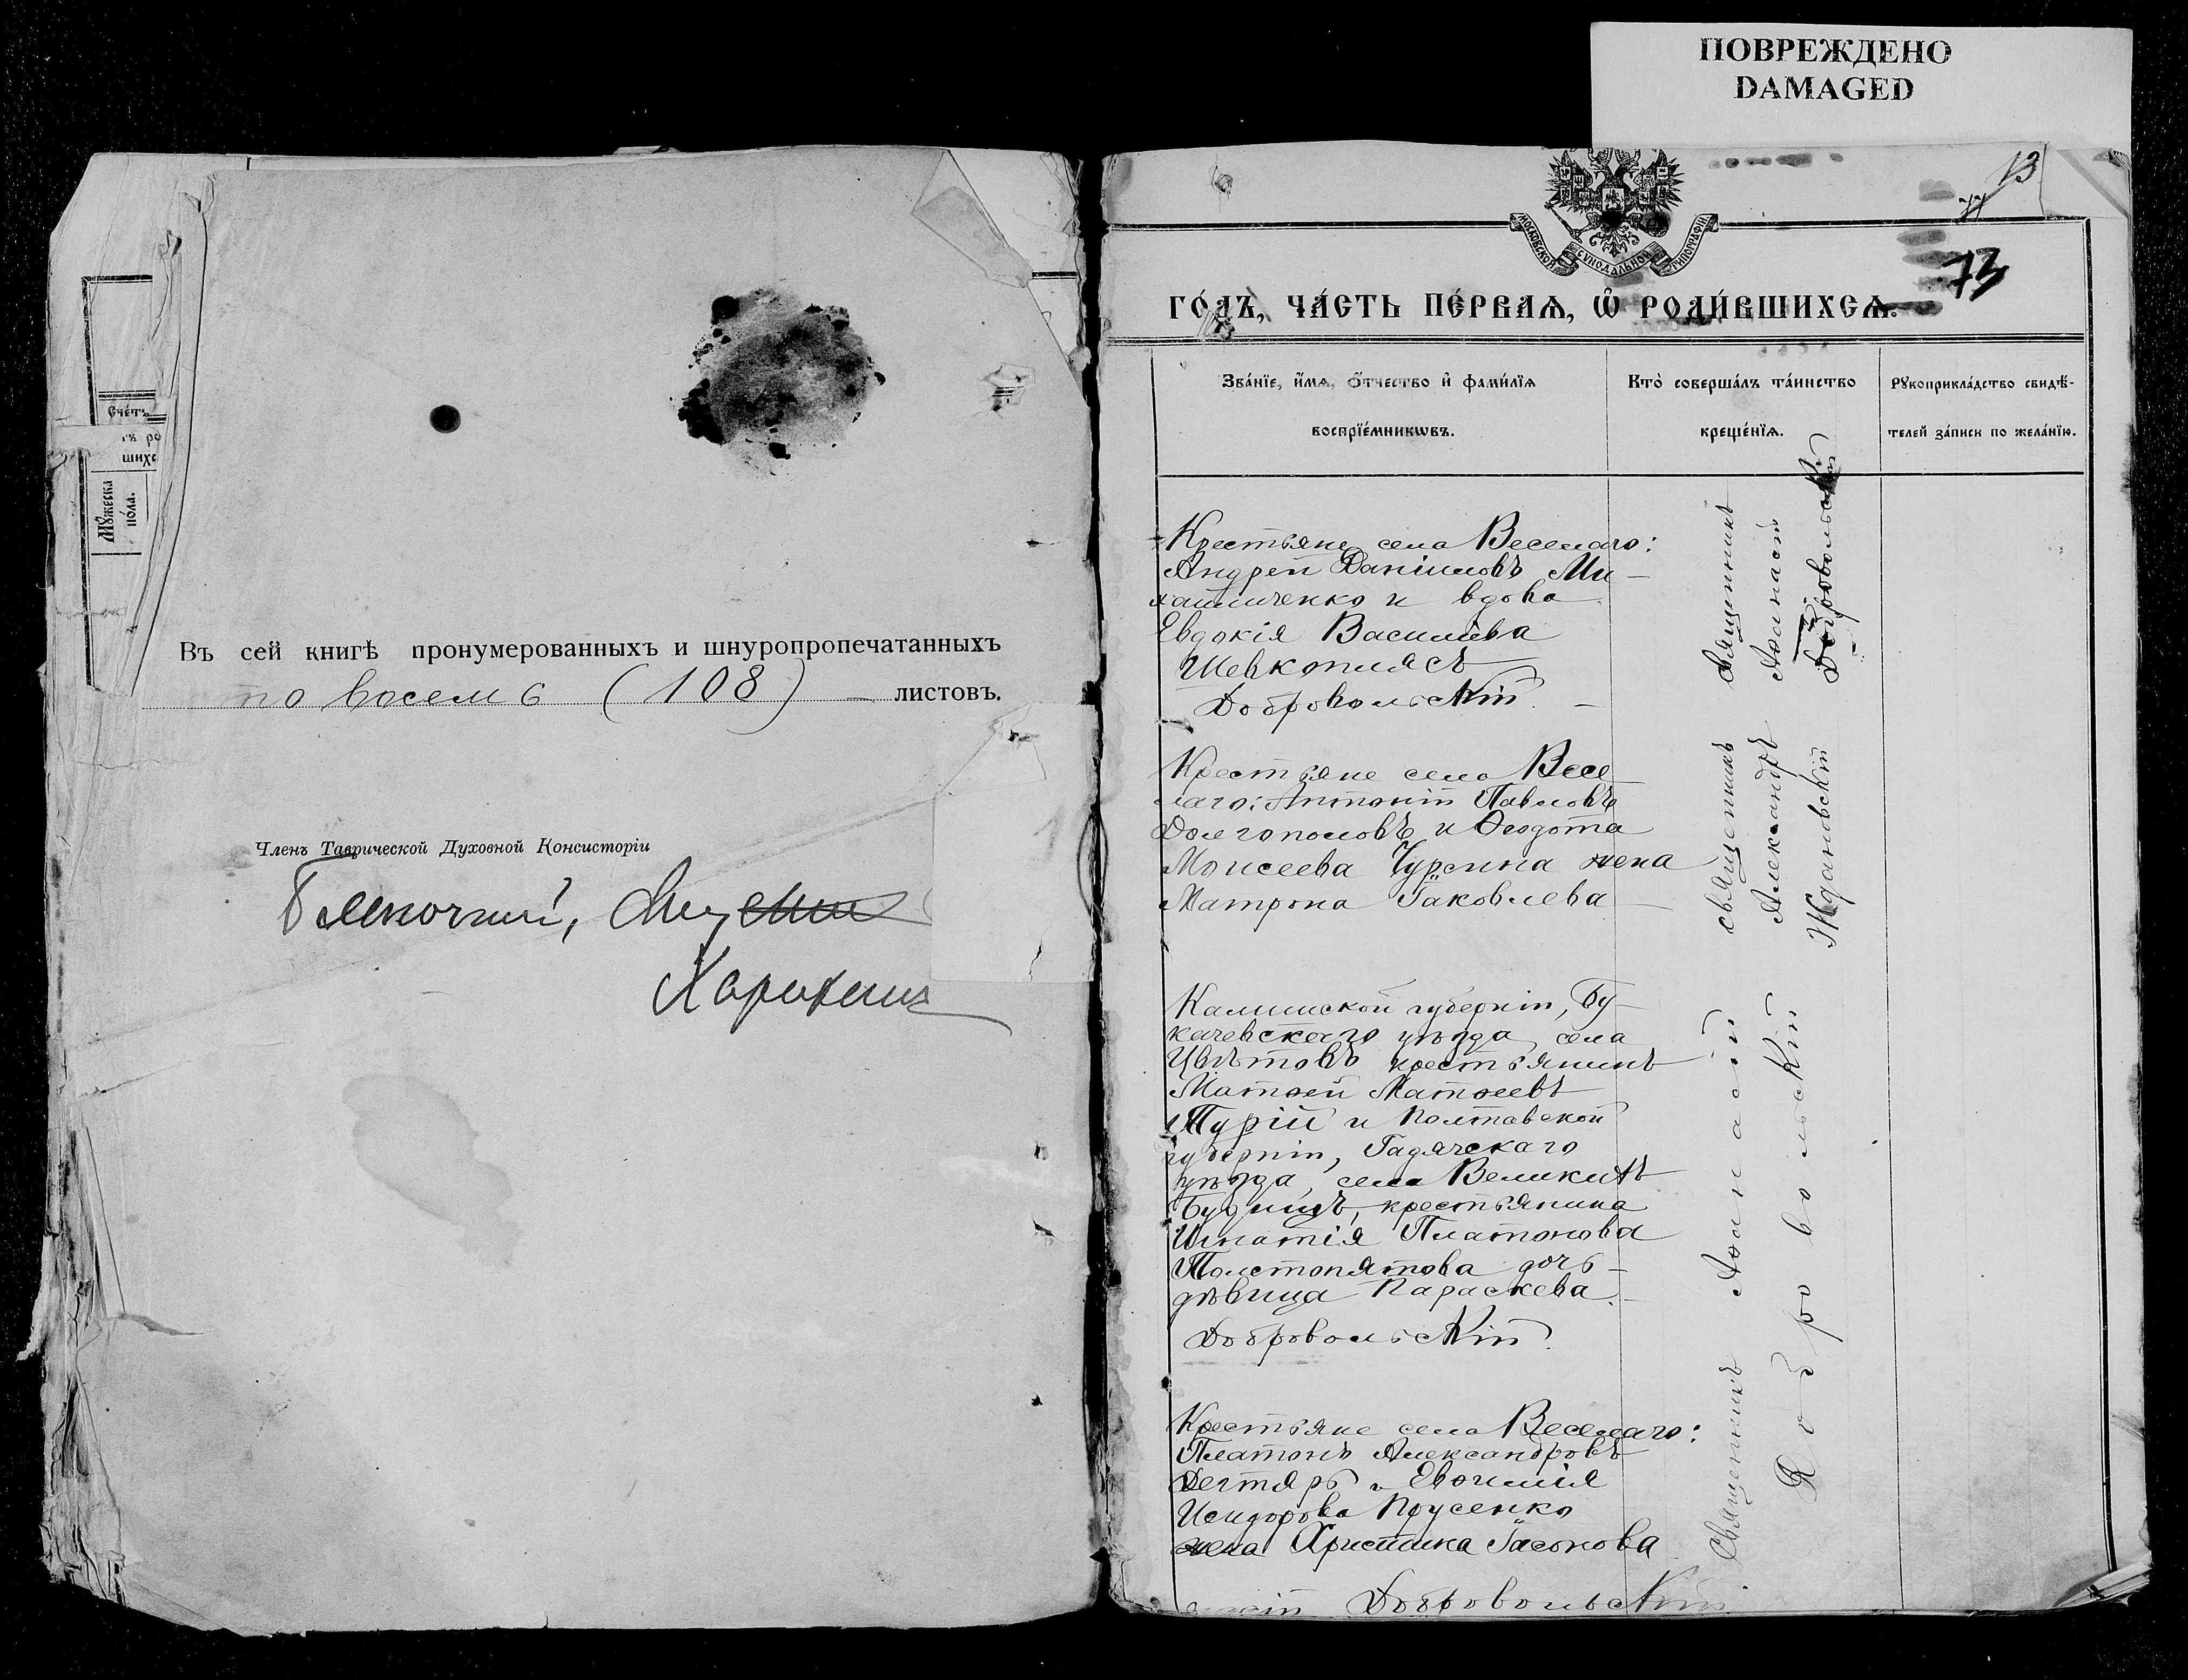 ПОВРЕЖДЕНО
DAMAGED
Счетъ
Мꙋжеска
пола.
Въ сей книгѣ пронумерованныхъ и шнуропропечатанныхъ
то восемь (108) листовъ.
Членъ Таврической Духовной Консисторіи
13
73
МОСКОВСКОЙ СѴНОДАЛЬНОЙ ТИПОГРАФІИ
ГО́ДЪ, ЧА́СТЬ ПЕ́РВАѦ, Ѡ҆ РОДИ́ВШИХСѦ.
Зва́нїе, и҆́мѧ, ѻ҆́тчество и҆ фами́лїѧ
воспрїе́мникѡвъ.
Кто̀ соверша́лъ та́инство
креще́нїѧ.
Рꙋкоприкла́дство свидѣ́-
телей за́писи по жела́нїю.
Крестьяне села Веселаго:
Андрей Даніиловъ Ми-
хайличенко и вдова
Евдокія Васильева
Шевкоплясъ
Добровольскій.
Священникъ
Аѳанасій
Добровольскій
Крестьяне села Весе-
лаго: Антоній Павловъ
Долгополовъ и Ѳеодота
Моисеева Чурсина жена
Матрона Іаковлева
священникъ
Александръ
Ждановскій
Калишской губерніи,
уѣзда села
Цвѣтовъ крестьянинъ
Матѳей Матѳеевъ
Турій и Полтавской
губерніи, Гадячскаго
уѣзда, села Великихъ
Будищъ, крестьянина
Игнатія Платонова
Толстопятова дочь
дѣвица Параскева.
Добровольскій.
Крестьяне села Веселаго:
Платонъ Александровъ
Дегтярь и Евѳимія
Исидорова Прусенко
жена Христина Іасонова
Добровольскій.
Священникъ Аѳанасій
Добровольскій